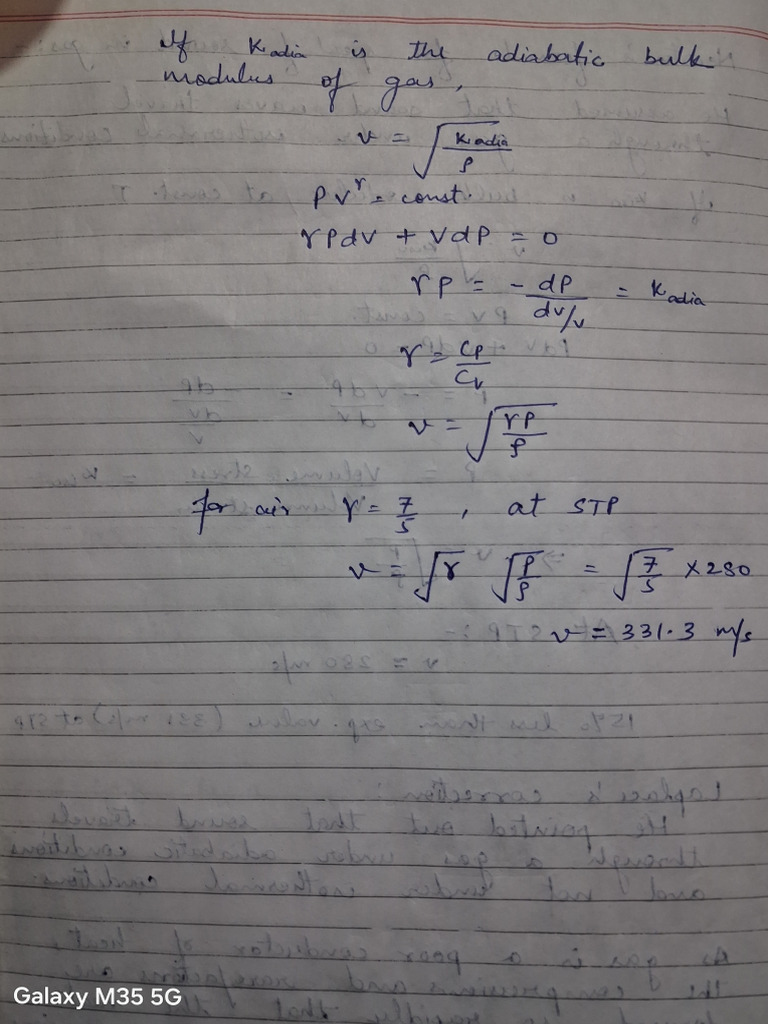 If Kadia is the adiabatic bulk
modulus of gas,
v = √(Kadia/ρ)
PV^γ = const.
γPdV + VdP = 0
γP = - dP/(dV/V) = Kadia
γ = CP/CV
v = √(γP/ρ)
for air γ = 7/5 , at STP
v = √γ √(P/ρ) = √(7/5) × 280
v = 331.3 m/s
Galaxy M35 5G